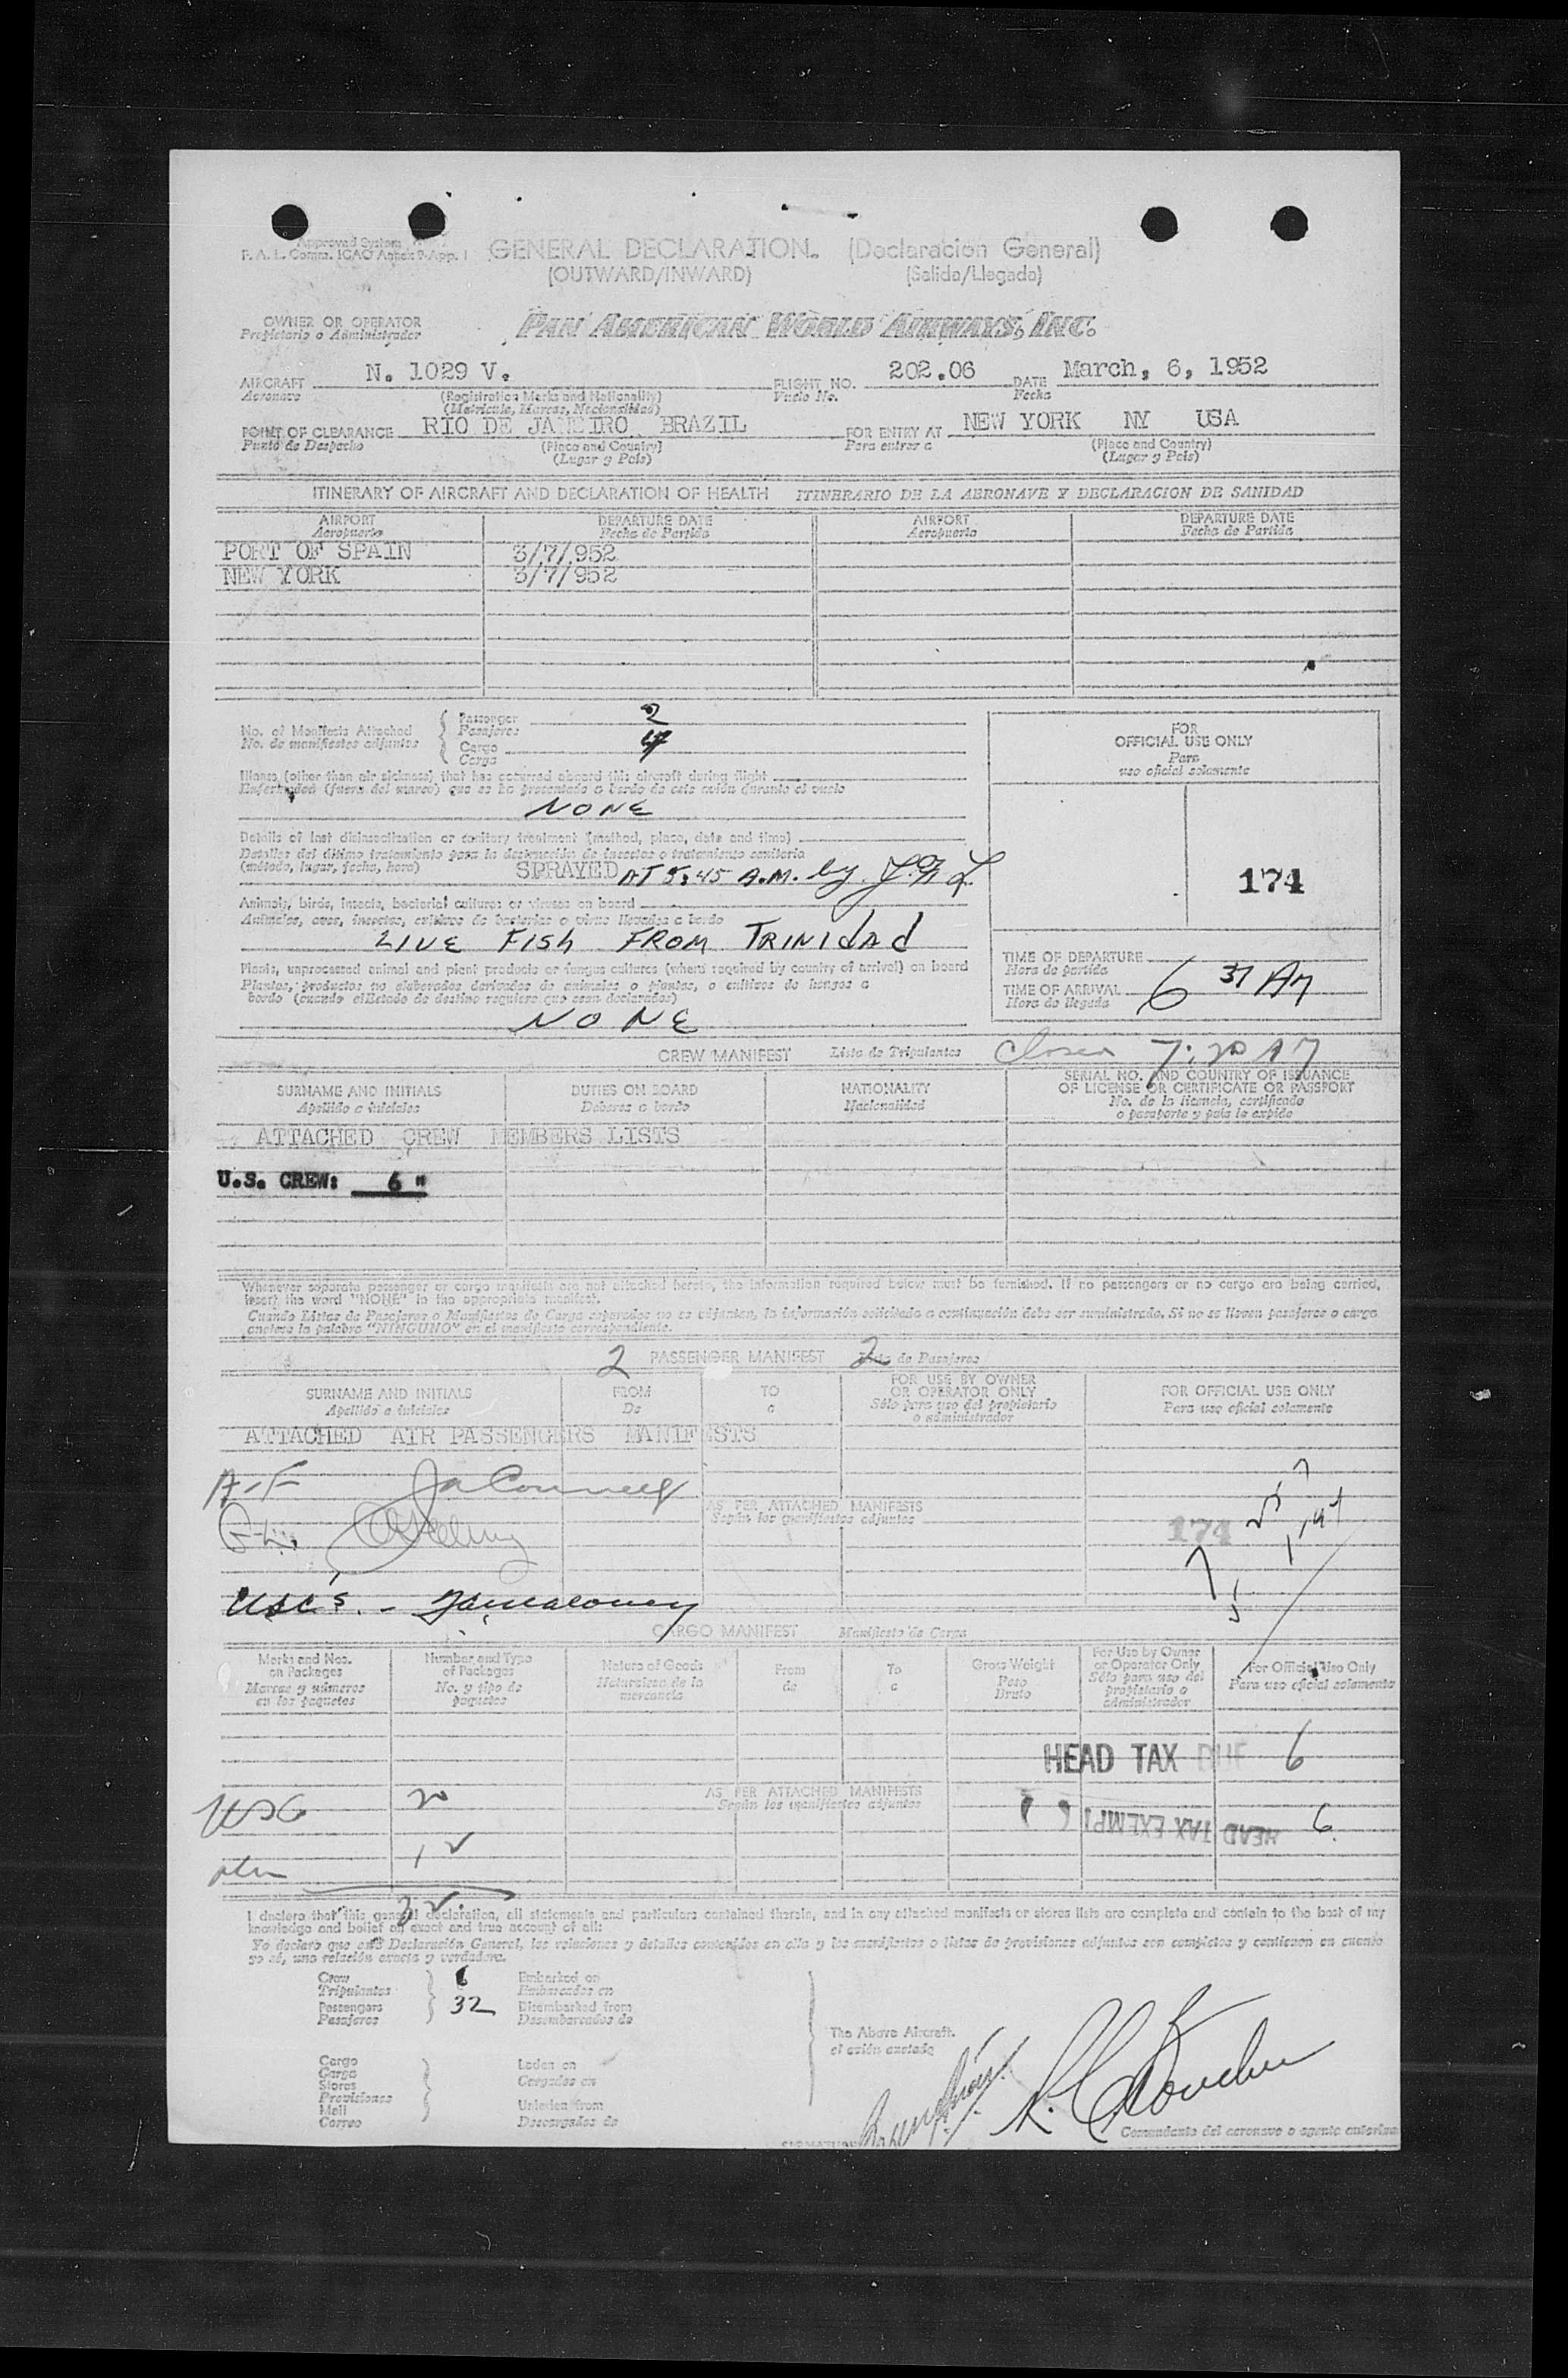 Approved System
F. A. L. Comm. ICAO Annex 9-App. 1
GENERAL DECLARATION. (Declaracion General)
(OUTWARD/INWARD) (Salida/Llegada)
OWNER OR OPERATOR
Propietario o Administrador
PAN AMERICAN WORLD AIRWAYS, INC.
AIRCRAFT N. 1029 V. FLIGHT NO. 202.06 DATE March, 6, 1952
Aeronave (Registration Marks and Nationality) Vuelo No. Fecha
(Matricula, Marcas, Nacionalidad)
POINT OF CLEARANCE RIO DE JANEIRO BRAZIL FOR ENTRY AT NEW YORK NY USA
Punto de Despacho (Place and Country) Para entrar a (Place and Country)
(Lugar y Pais) (Lugar y Pais)
ITINERARY OF AIRCRAFT AND DECLARATION OF HEALTH ITINERARIO DE LA AERONAVE Y DECLARACION DE SANIDAD
AIRPORT DEPARTURE DATE AIRPORT DEPARTURE DATE
Aeropuerto Fecha de Partida Aeropuerto Fecha de Partida
PORT OF SPAIN 3/7/952
NEW YORK 3/7/952
No. of Manifests Attached Passenger 2
No. de manifiestos adjuntos Pasajeros
Cargo
Carga
FOR
OFFICIAL USE ONLY
Para
uso oficial solamente
Illness (other than air sickness) that has occurred aboard this aircraft during flight
Enfermedad (fuera del mareo) que se ha presentado a bordo de este avión durante el vuelo
NONE
Details of last disinsectization or sanitary treatment (method, place, date and time)
Detalles del último tratamiento para la destrucción de insectos o tratamiento sanitario
(método, lugar, fecha, hora) SPRAYED AT 5:45 A.M. by
174
Animals, birds, insects, bacterial cultures or viruses on board
Animales, aves, insectos, cultivos de bacterias o virus llevados a bordo
LIVE FISH FROM TRINIDAD
Plants, unprocessed animal and plant products or fungus cultures (where required by country of arrival) on board
Plantas, productos no elaborados derivados de animales o plantas, o cultivos de hongos a
bordo (cuando el Estado de destino requiere que sean declarados)
NONE
TIME OF DEPARTURE
Hora de partida
TIME OF ARRIVAL 6 37 AM
Hora de llegada
CREW MANIFEST Lista de Tripulantes 7:20 AM
SURNAME AND INITIALS DUTIES ON BOARD NATIONALITY SERIAL NO. AND COUNTRY OF ISSUANCE
Apellido e iniciales Deberes a bordo Nacionalidad OF LICENSE OR CERTIFICATE OR PASSPORT
No. de la licencia, certificado
o pasaporte y pais lo expide
ATTACHED CREW MEMBERS LISTS
U.S. CREW: 6 "
Whenever separate passenger or cargo manifests are not attached hereto, the information required below must be furnished. If no passengers or no cargo are being carried,
insert the word "NONE" in the appropriate manifest.
Cuando Listas de Pasajeros o Manifiestos de Carga separados no se adjuntan, la información solicitada a continuación debe ser suministrada. Si no se llevan pasajeros o carga
anótese la palabra "NINGUNO" en el manifiesto correspondiente.
2 PASSENGER MANIFEST 2 Lista de Pasajeros
SURNAME AND INITIALS FROM TO FOR USE BY OWNER FOR OFFICIAL USE ONLY
Apellido e iniciales De a OR OPERATOR ONLY Para uso oficial solamente
Sólo para uso del propietario
o administrador
ATTACHED AIR PASSENGERS MANIFESTS
AS PER ATTACHED MANIFESTS
Según los manifiestos adjuntos
174
CARGO MANIFEST Manifiesto de Carga
Marks and Nos. Number and Type Nature of Goods From To Gross Weight For Use by Owner For Official Use Only
on Packages of Packages Naturaleza de la de a Peso or Operator Only Para uso oficial solamente
Marcas y números No. y tipo de mercancia Bruto Sólo para uso del
en los paquetes paquetes propietario o
administrador
HEAD TAX DUE 6
AS PER ATTACHED MANIFESTS
Según los manifiestos adjuntos
HEAD TAX EXEMPT 6
I declare that this general declaration, all statements and particulars contained therein, and in any attached manifests or stores lists are complete and contain to the best of my
knowledge and belief an exact and true account of all:
Yo declaro que esta Declaración General, las relaciones y detalles contenidos en ella y los manifiestos o listas de provisiones adjuntos son completos y contienen en cuanto
yo sé, una relación exacta y verdadera.
Crew Embarked on
Tripulantes Embarcados en
Passengers 32 Disembarked from
Pasajeros Desembarcados de
The Above Aircraft.
el avión anotado
Cargo Laden on
Carga Cargados en
Stores
Provisiones
Mail Unladen from
Correo Descargados de
SIGNATURE
Comandante del aeronave o agente autoriza